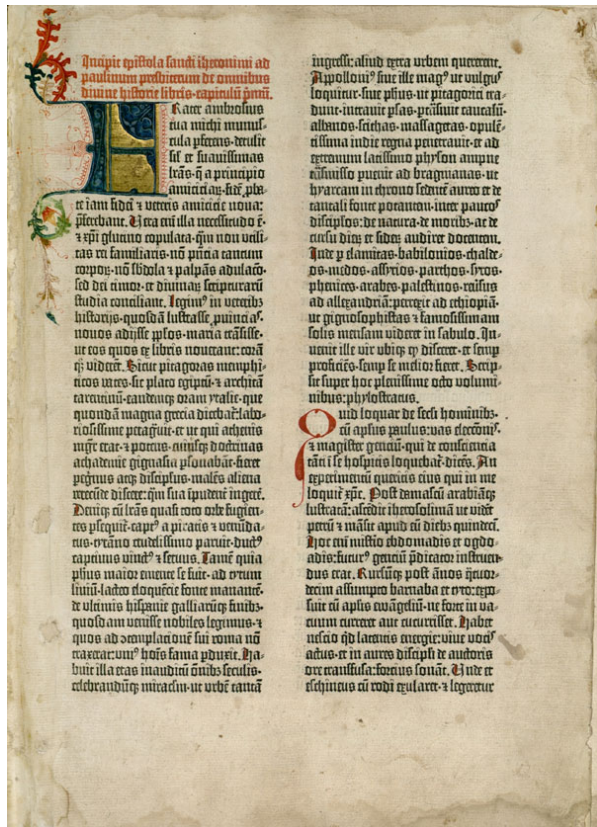 Incipit epistola sancti iheronimi ad
paulinum presbiterum de omnibus
divine historie libris. capitulū pmū.
Frater ambrosius
tua michi munus-
cula pferens. detulit
sīl et suavissimas
lrās. q̄ a principio
amicicia₂. fidē pba-
te iam fidei et veteris amicicie nova:
pferebant. Vera eni illa necessitudo ē.
et xpi glutino copulata. qm non utili-
tas rei familiaris. nō pntia tantum
corpor₂. nō sbdola et palpās adulacō.
sed dei timor. et divina₂ scripturarū
studia conciliant. Legimꝰ in veterib₂
historijs. quosdā lustrasse puīcias.
novos adijsse pplos. maria trāsisse.
ut eos quos ex libris noverant: corā
q₂ viderēt. Sicut pitagoras memphi-
ticos vates. sic plato egiptū. et architā
tarentinū. eandemq₂ oram ytalie. que
quondā magna grecia dicebat̄: labo-
riosissime peragͥvit. et ut qui athenis
mgr̄ erat. et potens. cuiusq₂ doctrinas
achademie gignasia psonabāt. fieret
pegrinus atq₂ discipulus. malēs aliena
verecūde discere: qm̄ sua īpudent̄ ingere.
Deniq₂ cū lrās quasi toto orbe fugien-
tes pseqͥt̄. captꝰ a piratis et venūda-
tus. tyrāno crudelissimo paruit. ductꝰ
captivus vinctꝰ et servus. Tamē quia
phus maior emente se fuit. ad tytum
liviū. lacteo eloquēcie fonte manantē.
de ultimis hispanie galliarūq₂ finib₂.
quosdam venisse nobiles legimus. et
quos ad ɔtemplacionē sui roma nō
traxerat: uniꝰ hoīs fama pduxit. Ha-
buit illa etas inauditū oīnib₂ seculis.
celebrandūq₂ miraclm. ut urbē tantā
ingressi: aliud extra urbem quererent.
Apolloniꝰ sive ille magꝰ ut vulgus
loquitur. sive phus. ut pitagorici tra-
dunt. intravit psas. ptrāsivit caucasū.
albanos. scithas. massagetas. opulē-
tissima indie regna penetravit. et ad
extremum latissimo physon ampne
trāsmisso puenit ad bragmanas. ut
hyarcam in throno sedētē aureo et de
tantali fonte potantem. inter paucos
disciplos: de natura. de morib₂. ac de
cursu die₂ et side₂ audiret docentem.
Inde p elamitas. babilonios. chalde-
os. medos. assyrios. parthos. syros.
phenices. arabes. palestinos. reversus
ad allexandriā: perrexit ad ethiopiā.
ut gignosophistas et famosissimam
solis mensam videret in sabulo. In-
venit ille vir ubiq₂ qd disceret. et semp
proficiēs. semp se melior fieret. Scrip-
sit super hoc plenissime octo volumi-
nibus: phylostratus.
Quid loquar de secli hominib₂.
cū apłus paulus: vas electōnis.
et magister genciū. qui de consciencia
tāti ī se hospitis loquebat̄. dicēs. An
experimentū queritis eius qui in me
loquit̄ xpc. Post damascū arabiāq₂
lustratā: ascēdit iherosolimā ut vidēt
petrū et māsit apud eū dieb₂ quindeci.
Hoc eni mistio ebdomadis et ogdo-
adis: futurꝰ genciū pdicator instruen-
dus erat. Rursūq₂ post ānos qtuor-
decim assumpto barnaba et tyto: expo-
suit cū aplis ewangeliū. ne forte in va-
cuum curreret aut cucurrisset. Habet
nescio qd latentis energie: vive vocis
actus. et in aures discipli de auctoris
ore transfusa: forcius sonat. Unde et
eschineus cū rodi exularet. et legeretur